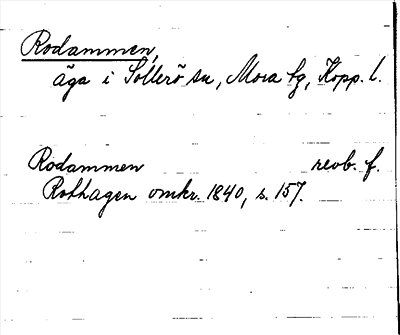 Rodammen,
äga i Sollerö sn, Mora tg, Kopp. l.
Rodammen revb. f.
Rothagen omkr. 1840, s. 157.